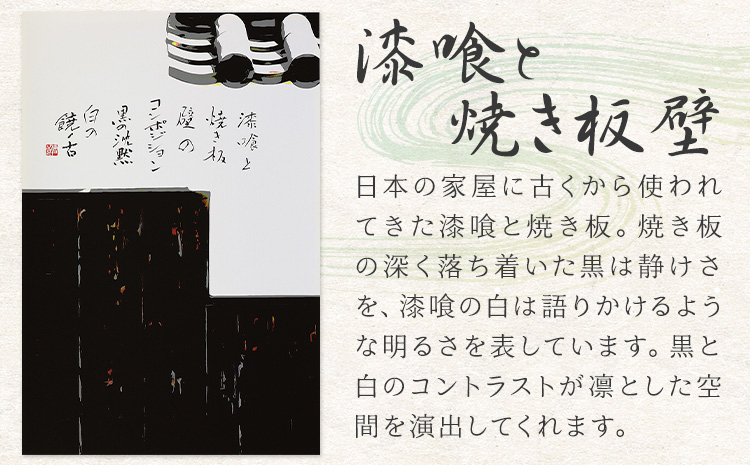 漆喰と
焼き板
壁の
コンポジション
黒の沈黙
白の
饒舌
漆喰と
焼き板壁
日本の家屋に古くから使われ
てきた漆喰と焼き板。焼き板
の深く落ち着いた黒は静けさ
を、漆喰の白は語りかけるよう
な明るさを表しています。黒と
白のコントラストが凛とした空
間を演出してくれます。